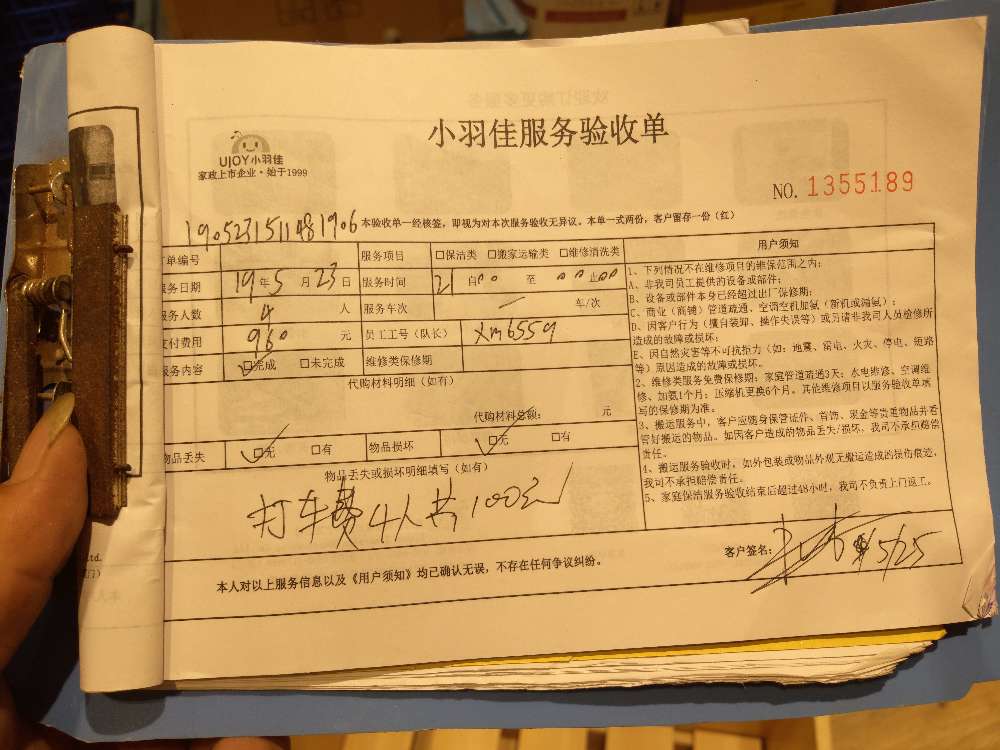 小羽佳服务验收单
UJOY小羽佳
家政上市企业·始于1999
NO. 1355189
1905231511481906 本验收单一经核签，即视为对本次服务验收无异议。本单一式两份，客户留存一份（红）
订单编号 服务项目 □保洁类 □搬家运输类 □维修清洗类
服务日期 19年5月23日 服务时间 21 自00 至 00 止00
服务人数 4 人 服务车次 车/次
支付费用 960 元 员工工号（队长） xm6559
服务内容 □完成 □未完成 维修类保修期
代购材料明细（如有）
代购材料总额： 元
物品丢失 □无 □有 物品损坏 □无 □有
物品丢失或损坏明细填写（如有）
打车费4人共100元
用户须知
1、下列情况不在维修项目的维保范围之内：
A、非我司员工提供的设备或部件；
B、设备或部件本身已经超过出厂保修期；
C、商业（商铺）管道疏通、空调空机加氨（新机或漏氨）；
D、因客户行为（擅自装卸、操作失误等）或另请非我司人员检修所
造成的故障或损坏；
E、因自然灾害等不可抗拒力（如：地震、雷电、火灾、停电、短路
等）原因造成的故障或损坏。
2、维修类服务免费保修期：家庭管道疏通3天；水电维修、空调维
修、加氨1个月；压缩机更换6个月。其他维修项目以服务验收单填
写的保修期为准。
3、搬运服务中，客户应随身保管证件、首饰、现金等贵重物品并看
管好搬运的物品。如因客户造成的物品丢失/损坏，我司不承担赔偿
责任。
4、搬运服务验收时，如外包装或物品外观无搬运造成的损伤痕迹，
我司不承担赔偿责任。
5、家庭保洁服务验收结束后超过48小时，我司不负责上门返工。
客户签名： 5/25
本人对以上服务信息以及《用户须知》均已确认无误，不存在任何争议纠纷。
Ltd.